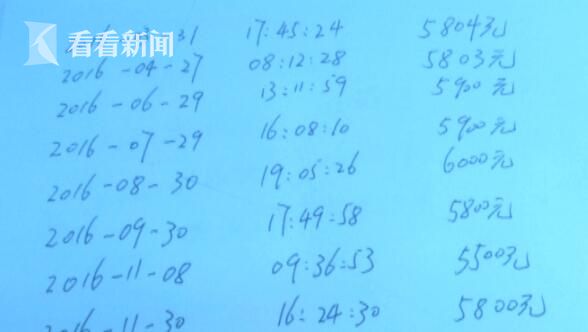 看看新闻
31 17:45:24 5804元
2016-04-27 08:12:28 5803元
2016-06-29 13:11:59 5900元
2016-07-29 16:08:10 5900元
2016-08-30 19:05:26 6000元
2016-09-30 17:49:58 5800元
2016-11-08 09:36:53 5500元
2016-11-30 16:24:30 5800元